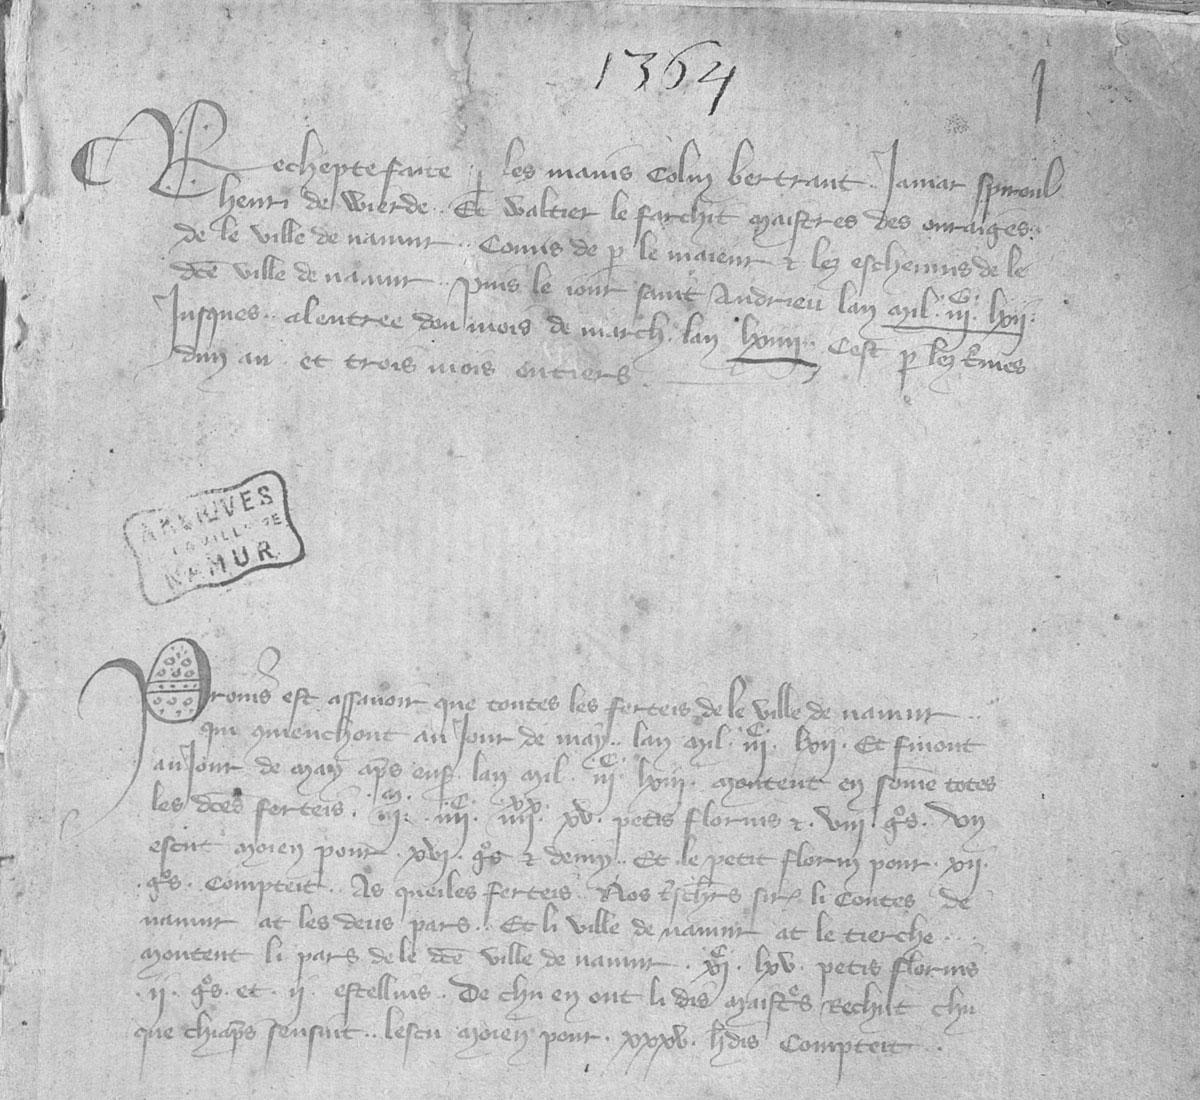 1364
1
Rechepte faite p les mains Colin bertrant .. Jamar spiroul
henri de Wierde .. Et waltier le farchit maistres des ouraiges
de le ville de namur .. Comis de p le maieur & lez eschevins de le
dce ville de namur .. puis le jour saint Andrieu lan mil . iij C . lxij .
Jusques .. alentree dou mois de march . lan lxiiij .. Cest p lez tmes
dun an et trois mois entiers
ARCHIVES
DE LA VILLE DE
NAMUR
Promis est assavoir que toutes les ferteis de le ville de namur ..
qui qmenchont au Jour de may .. lan mil . iij C . lxij . Et finont
au Jour de may aps ens . lan mil . iij C . lxiij . montent en some totes
les dces ferteis . iij M . iiij C . iiij xx . xv . petis florins & . viij . gos . Un
escut moien pour . xvi . gos & demy .. Et le petit florin pour . xij .
. gos . Compteit .. As queiles ferteis Nos li Contes de
namur at les deus pars .. Et li ville de namur at le tierche ..
montent li pars de le dce ville de namur . xj C . lxv . petis florins
. ij . gos . et . ij . estellins .. De chu en ont li dis maistres Rechut chu
que chi aps sensuit .. lescu moien pour . xxxv . hdis Compteit ..